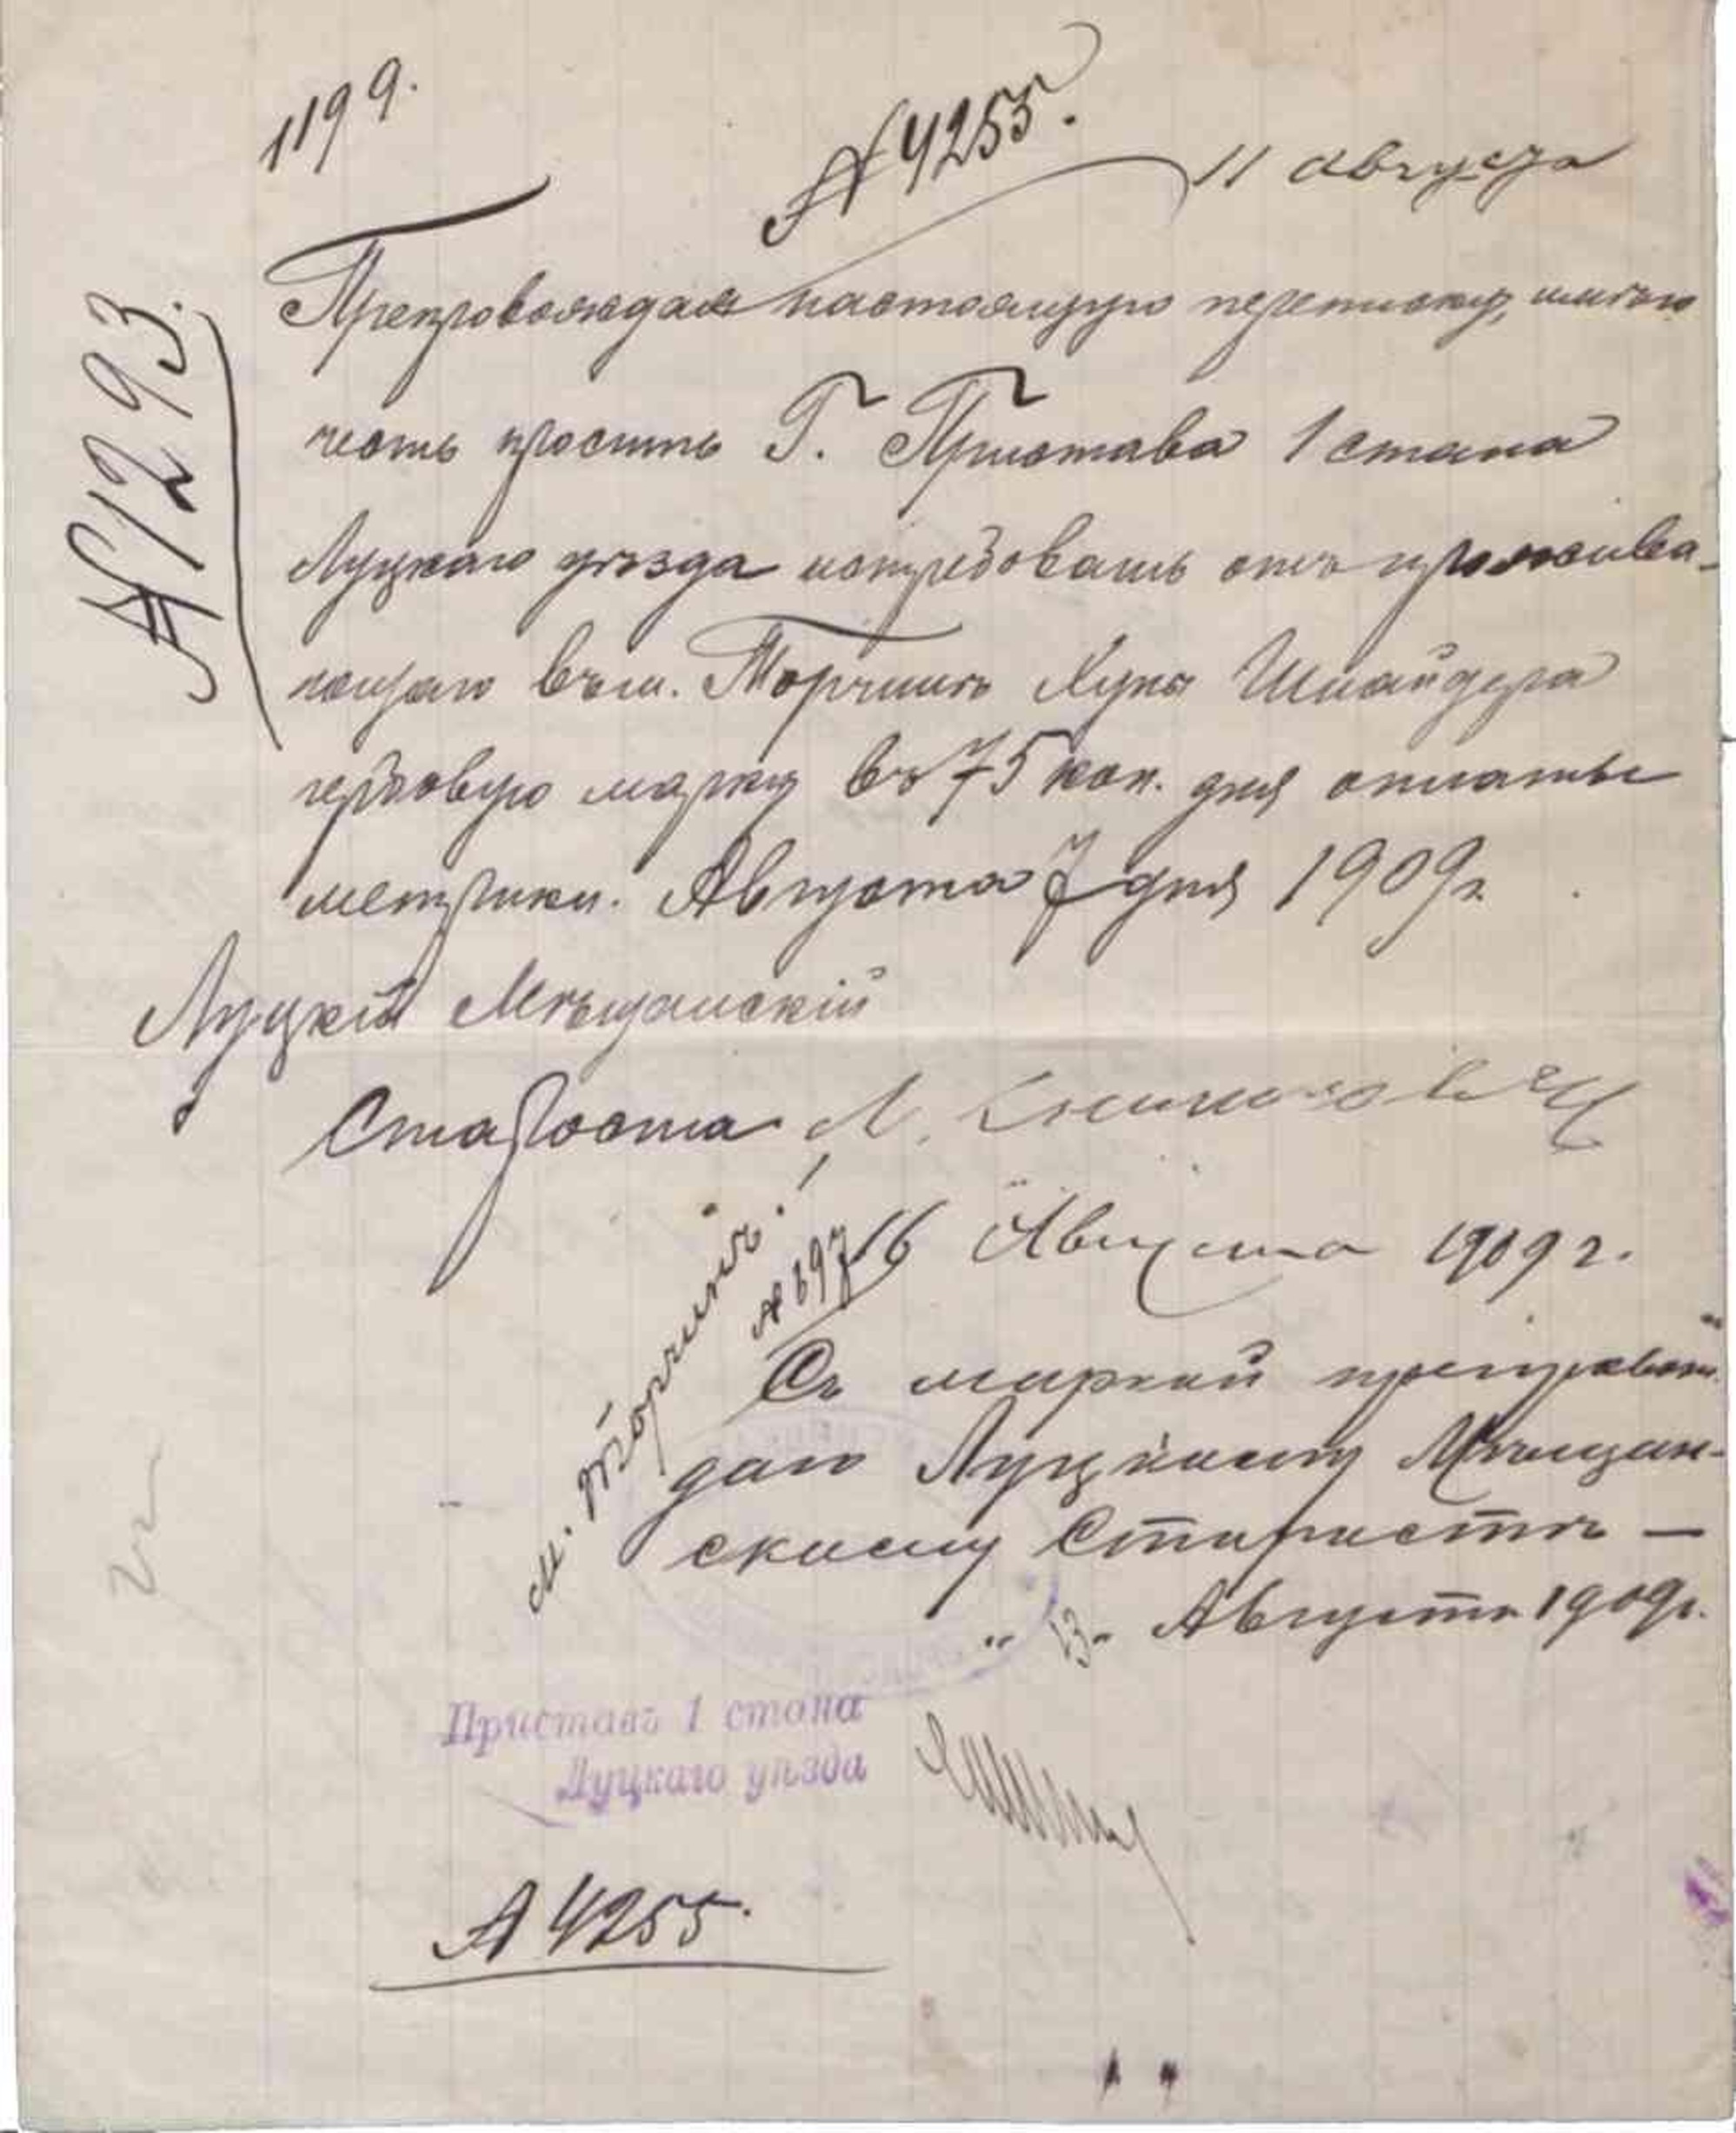 1199.
№ 4255.
11 августа
№ 1293.
Препровождая настоящую переписку, имѣю
честь просить Г. Пристава 1 стана
Луцкаго уѣзда истребовать отъ прожива-
ющаго въ м. Торчинѣ Хуны Шнайдера
гербовую марку въ 75 коп. для оплаты
метрики. Августа 7 дня 1909 г.
Луцкій Мѣщанскій
Староста Л.
16 Августа 1909 г.
№ 697
м. Торчинъ!
Съ маркой препровож
даю Луцкому Мѣщан-
скому Старостѣ —
„13" Августа 1909 г.
Приставъ 1 стана
Луцкаго уѣзда
№ 4255.